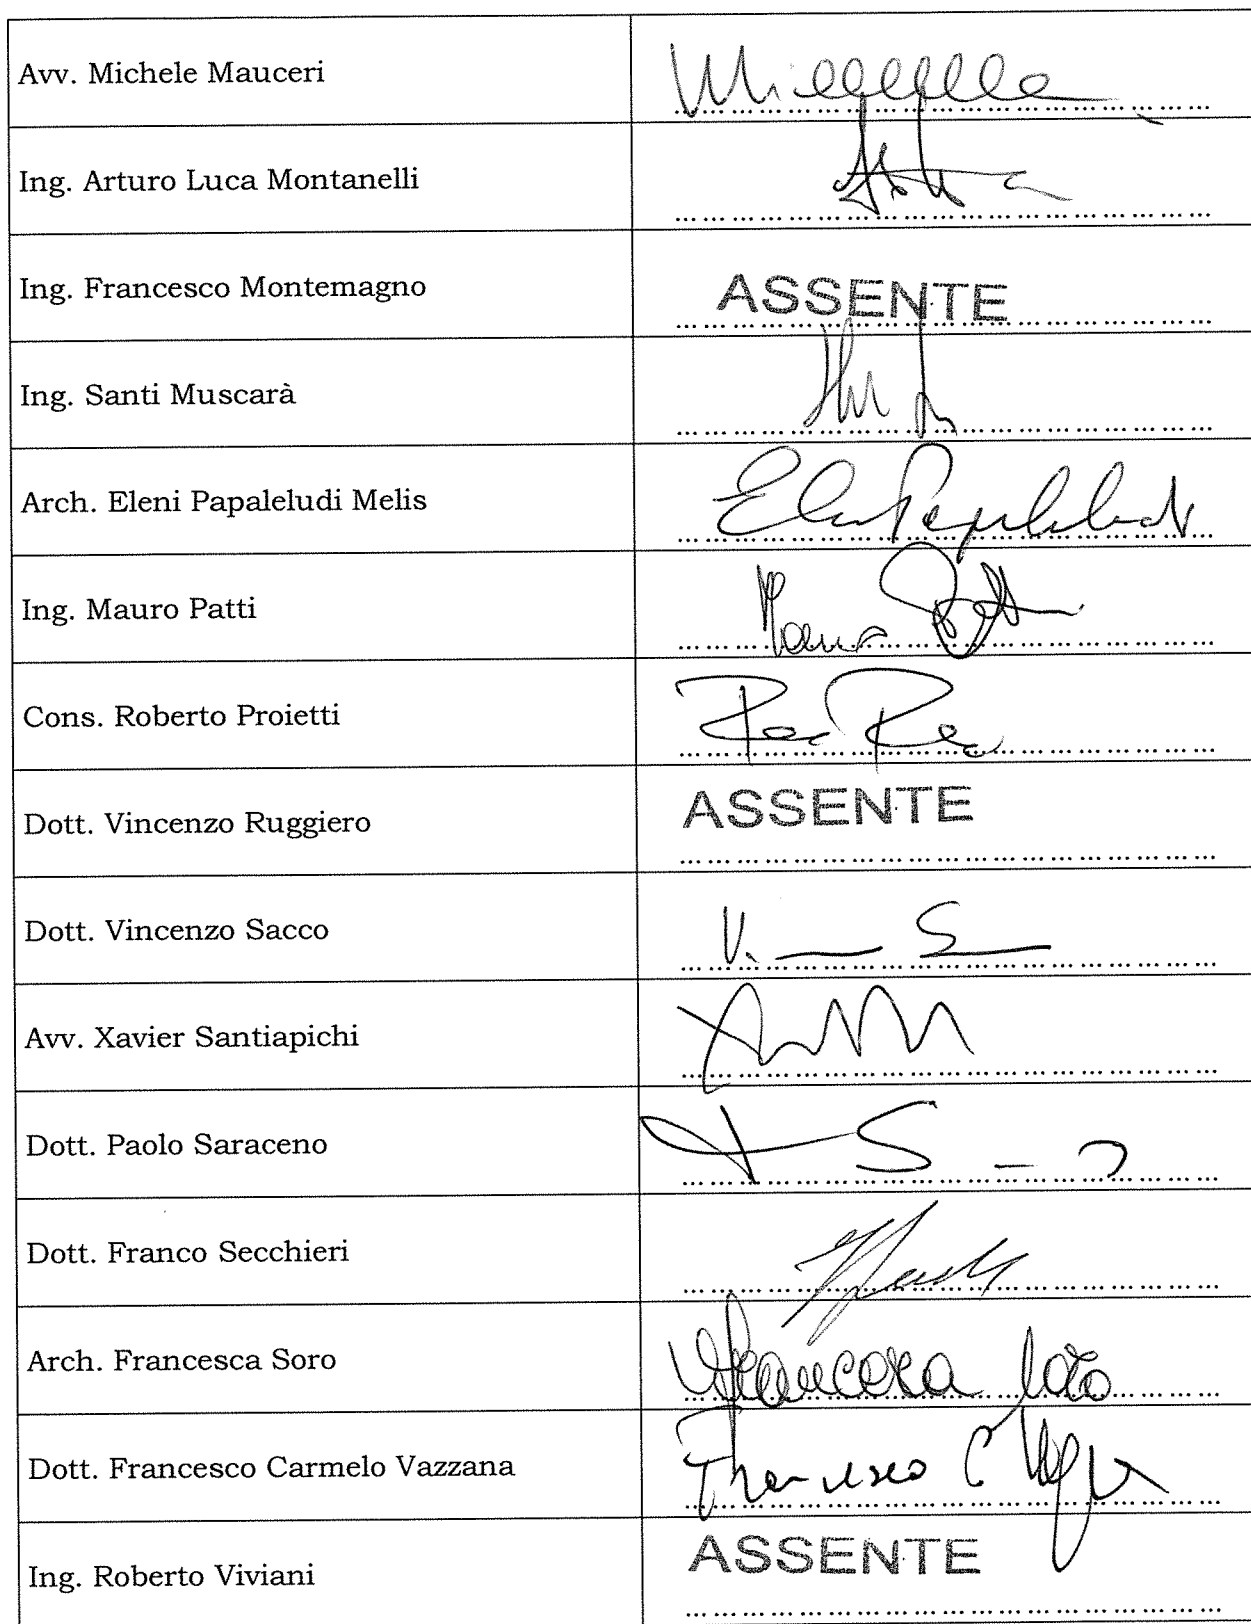 Avv. Michele Mauceri
Ing. Arturo Luca Montanelli
Ing. Francesco Montemagno ASSENTE
Ing. Santi Muscarà
Arch. Eleni Papaleludi Melis
Ing. Mauro Patti
Cons. Roberto Proietti
Dott. Vincenzo Ruggiero ASSENTE
Dott. Vincenzo Sacco
Avv. Xavier Santiapichi
Dott. Paolo Saraceno
Dott. Franco Secchieri
Arch. Francesca Soro Francesca Soro
Dott. Francesco Carmelo Vazzana Francesco C
Ing. Roberto Viviani ASSENTE